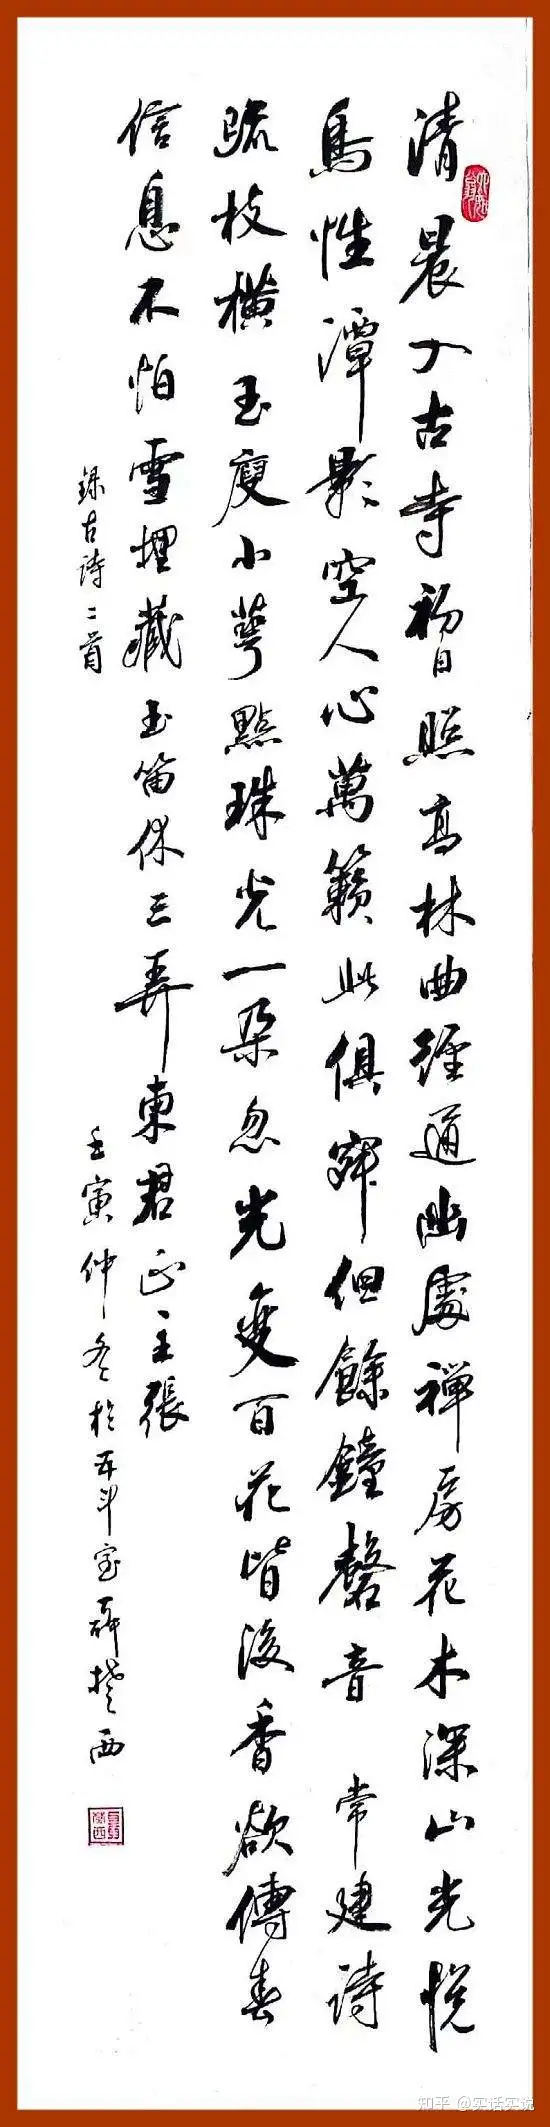 清晨入古寺初日照高林曲径通幽處禅房花木深山光悦
鳥性潭影空人心萬籟此俱寂但餘鐘磬音 常建诗
疏枝横玉瘦小萼點珠光一朵忽先變百花皆後香欲傳春
信息不怕雪埋藏玉笛休三弄東君正主張
録古诗二首
壬寅仲冬於五斗室 楚西
知乎 @实话实说